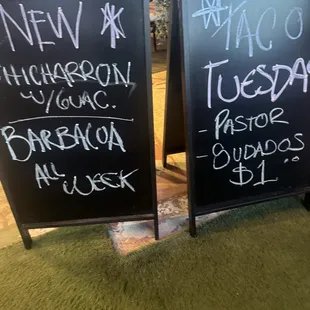 NEW *
CHICHARRON
W/GUAC.
BARBACOA
ALL WEEK
TACO
TUESDAY
- PASTOR
- SUDADOS
$1